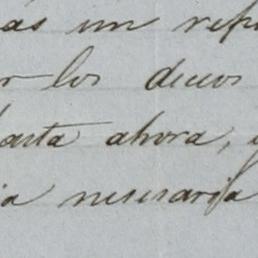 as un rep
r los deseos
hasta ahora,
ia nesesaria